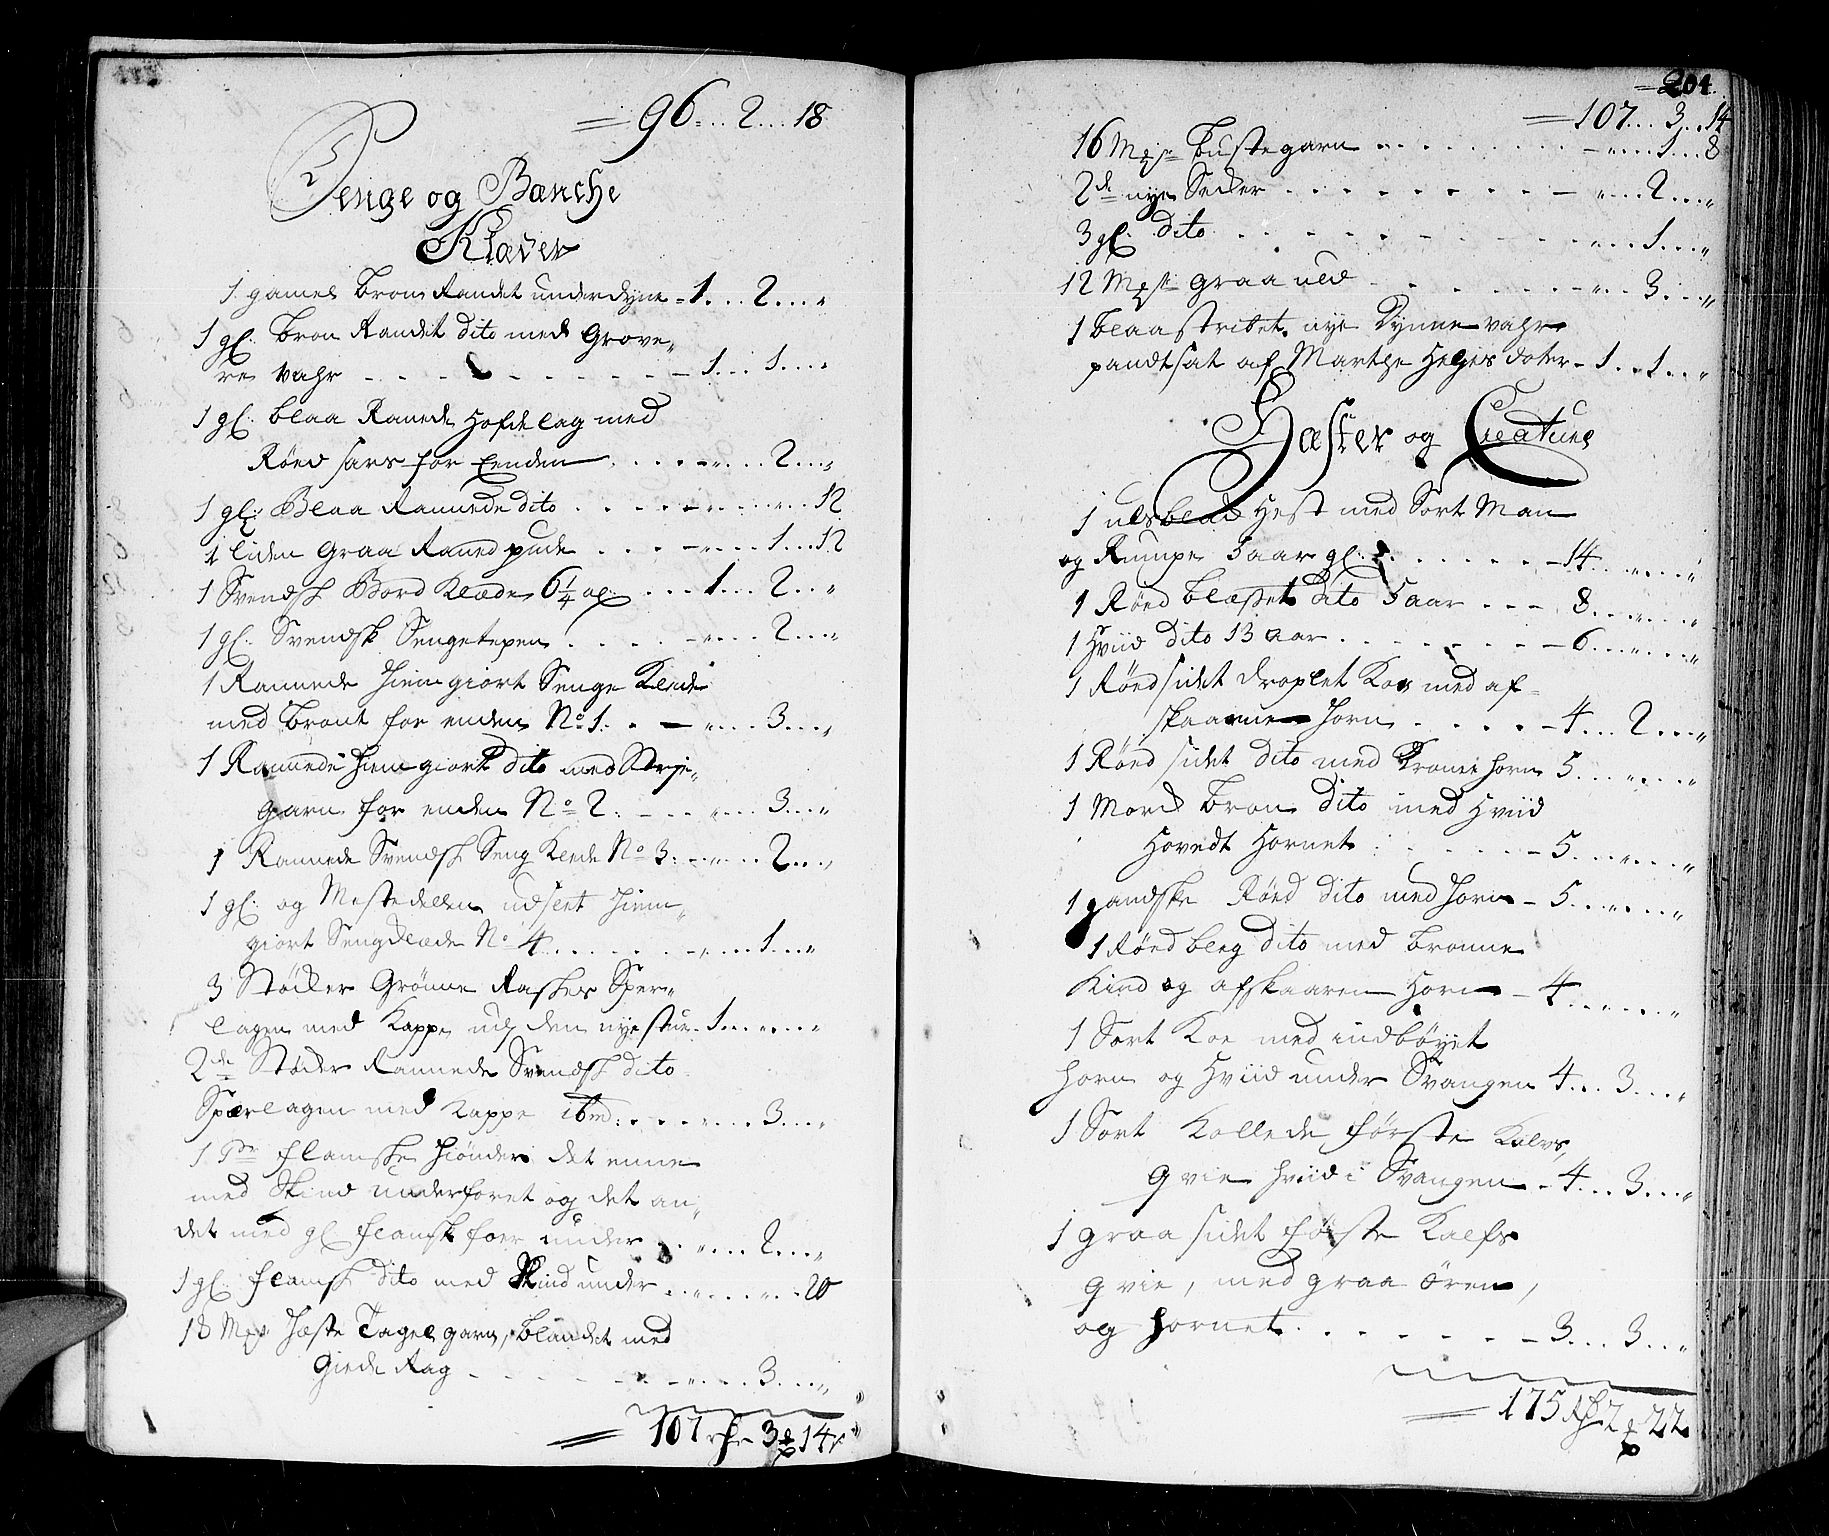 = 96...2...18
Senge og Bænche
Klæder
1 gamel brun Randet underdyne - 1...2...„
1 gl: brun Randit dito med Grove„
re vahr - - - - - - - 1...1...„
1 gl: blaa Raned Hofdelag med
Röed sars for Enden . . . . „...2...„
1 gl: Blaa Rannede dito . . . . „...„...12
1 liden Graa Raned pude . . . „...1...12
1 Svendsk Bord Klæde 6¼ al: . . . 1...2...„
1 gl: Svendsk Sengetepen . . . . „...2...„
1 Rannede Hiemgiort Senge Klede
med bront for enden No 1. . - „...3...„
1 Rannede Hiemgiort dito med Strje„
garn for enden No 2. - . . „...3...„
1 Rannede Svendsk Seng Klede No 3. „...2...„
1 gl: og Mestedelen udslet Hiem„
giort Sengklæde No 4 . . . . . „...1...„
3 Stöcker Grönne Raskes Sper„
lagen med Kappe udj den nye stue - 1...„...„
2de Stöcker Rannede Svendsk dito
Spærlagen med Kappe ibm: . . . „...3...„
1 Par flamske Hiönder det enne
med Skind underforet og det an„
det med gl flamsk foer under . . „...2...„
1 gl: flamsk dito med Skind under . . „...„...20
18 Mrk Hæste Tagel garn, blandet med
Giede Rag - - - - - - „...3...„
= 107 rdr 3 14 s
204
= 107...3...14
16 Mrk bustegarn . . . . . . . . „...1...8
2de nye Secker . . . . . . . - „...2...„
3 gl: dito . . . . . . . . „...1...„
12 Mrk graa uld - . . . . . „...3...„
1 blaastribet nye Dynne vahr
pandtsat af Marthe Heljes doter - 1...1...„
Hæster og Creature
1 ulsblad Hest med Sort Man
og Rumpe 5 aar gl: . . . . . . - 14...„...„
1 Röed blesset dito 5 aar . . - 8...„...„
1 Hviid dito 13 aar . . . . . . - 6...„...„
1 Röedsidet droplet Koe med af„
skaarne horn . . . . - 4...2...„
1 Röed sidet dito med Krone horn 5...„...„
1 Mord bron dito med Hviid
Hovedt Hornet . . . . - 5...„...„
1 gandske Röed dito med horn - 5...„...„
1 Röed bleg dito med bronne
Kind og afskaaren Horn - 4...„...„
1 Sort Koe med indböyet
horn og Hviid under Svangen 4...3...„
1 Sort Kollede förste Kalvs„
qvie hviid i Svangen - 4...3...„
1 graa sidet förste Kalfs
qvie, med graa ören,
og hornet . . . . . . - 3...3...„
= 175 Rdr 2 22